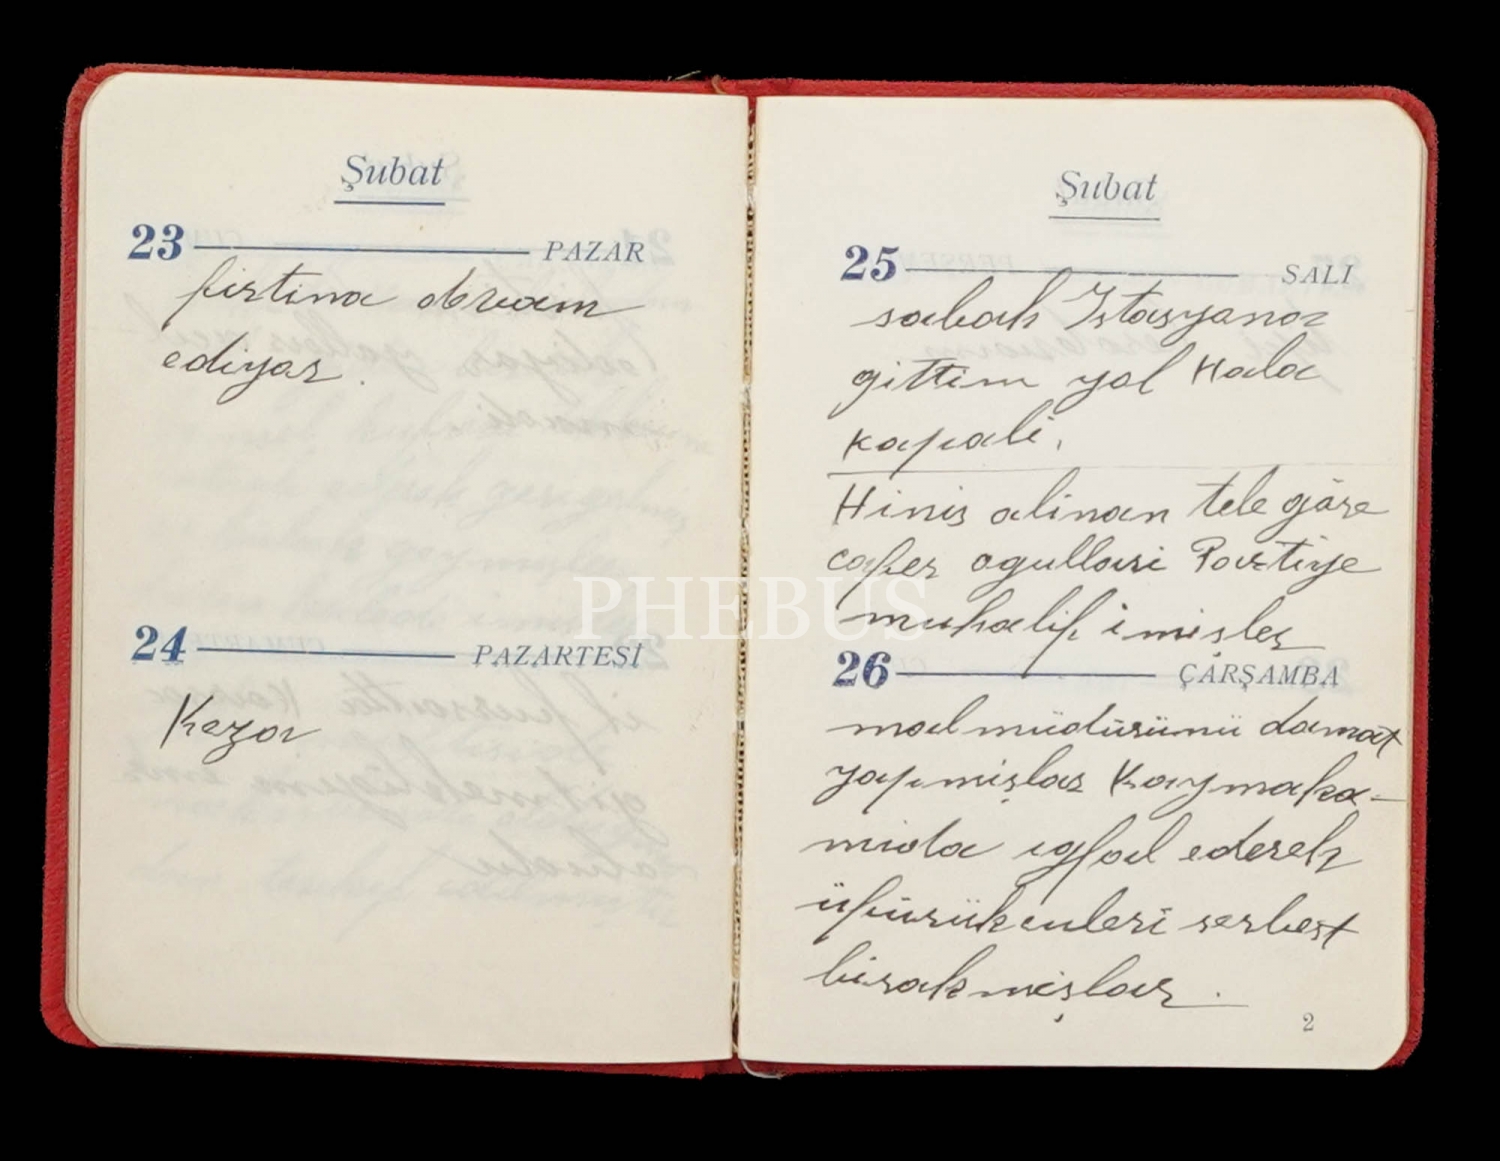 Şubat
23 PAZAR
firtina devam
ediyor.
24 PAZARTESİ
Keza
Şubat
25 SALI
sabah Istasyona
gittim yol Hala
kapali.
Hinis alinan tele göre
cafer ogullari Partiye
muhalif imişler
26 ÇARŞAMBA
mal müdürünü damat
yapmişlar Kaymaka-
mida igfal ederek
üfürükculeri serbest
birakmişlar.
2
PHEBUS